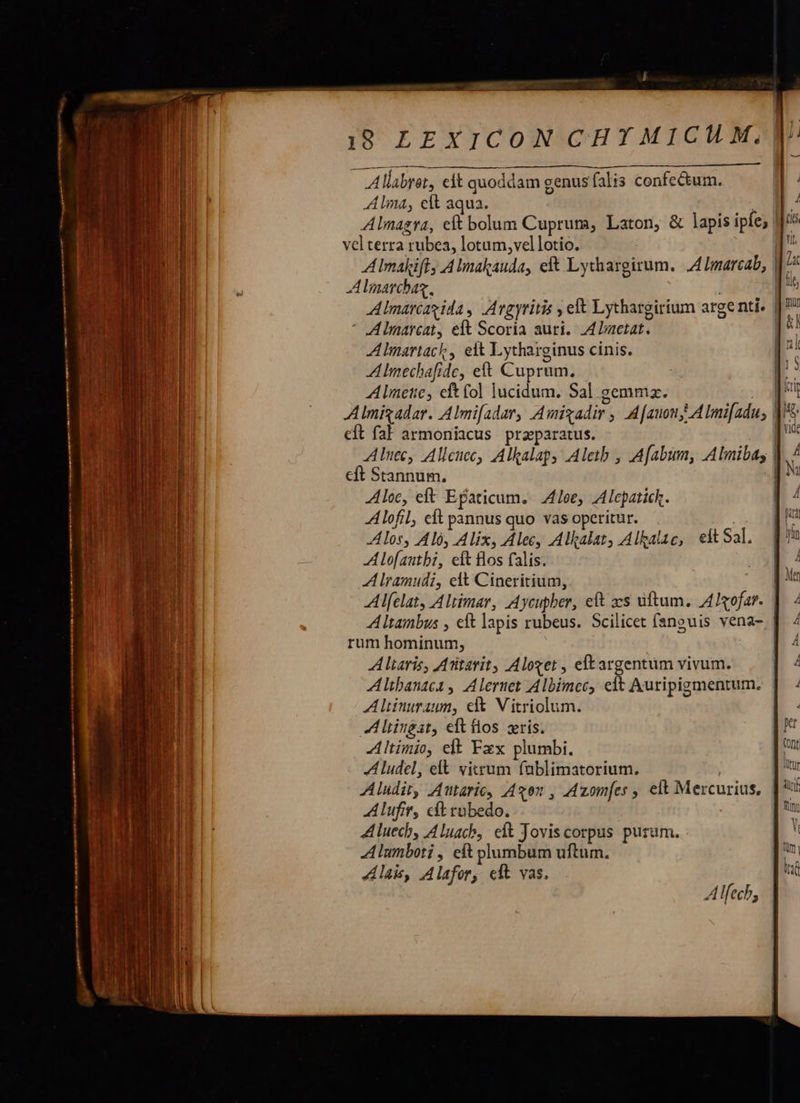 18 LEXICON CHYMICUM.
Allabrot, eſt quoddam genus ſalis confectum.
Alma, eſt aqua.
Almagra, eſt bolum Cuprum, Laton, & lapis ipſe,
vel terra rubea, lotum, vel lotio.
Almakiſt, Almakauda, eſt Lythargirum. Almarcab,
Almarchaz.
Almarcazida, Argyritis, eſt Lythargirium argenti.
Almarcat, eſt Scoria auri. Almetat.
Almartack, eſt Lytharginus cinis.
Almechaſide, eſt Cuprum.
Almene, eſt ſol lucidum. Sal gemmæ.
Almizadar. Almiſadar, Amizadir, Aſanon, Almiſadu,
eſt ſal armoniacus præparatus.
Alnec, Allenec, Alkalap, Aleth, Aſabum, Almibas
eſt Stannum.
Aloc, eſt Epaticum. Aloe, Alepatick.
Alofil, eſt pannus quo vas operitur.
Alos, Alò, Alix, Alec, Alkalat, Alkalac, eſt Sal.
Aloſanthi, eſt flos ſalis.
Alramudi, eſt Cineritium,
Alſelat, Altimar, Aycupher, eſt æs uſtum. Alzofar.
Altambus, eſt lapis rubeus. Scilicet ſanguis vena-
rum hominum,
Altaris, Antarit, Alozet, eſt argentum vivum.
Althanaca, Alernet Albimec, eſt Auripigmentum.
Altinuraum, eſt Vitriolum.
Altingat, eſt flos æris.
Altimio, eſt Fæx plumbi.
Aludel, eſt vitrum ſublimatorium.
Aludit, Antaric, Azon, Azomſes, eſt Mercurius,
Alufir, eſt rubedo.
Aluech, Aluach, eſt Jovis corpus purum.
Alumboti, eſt plumbum uſtum.
Alais, Alafor, eſt vas.
Alſech,